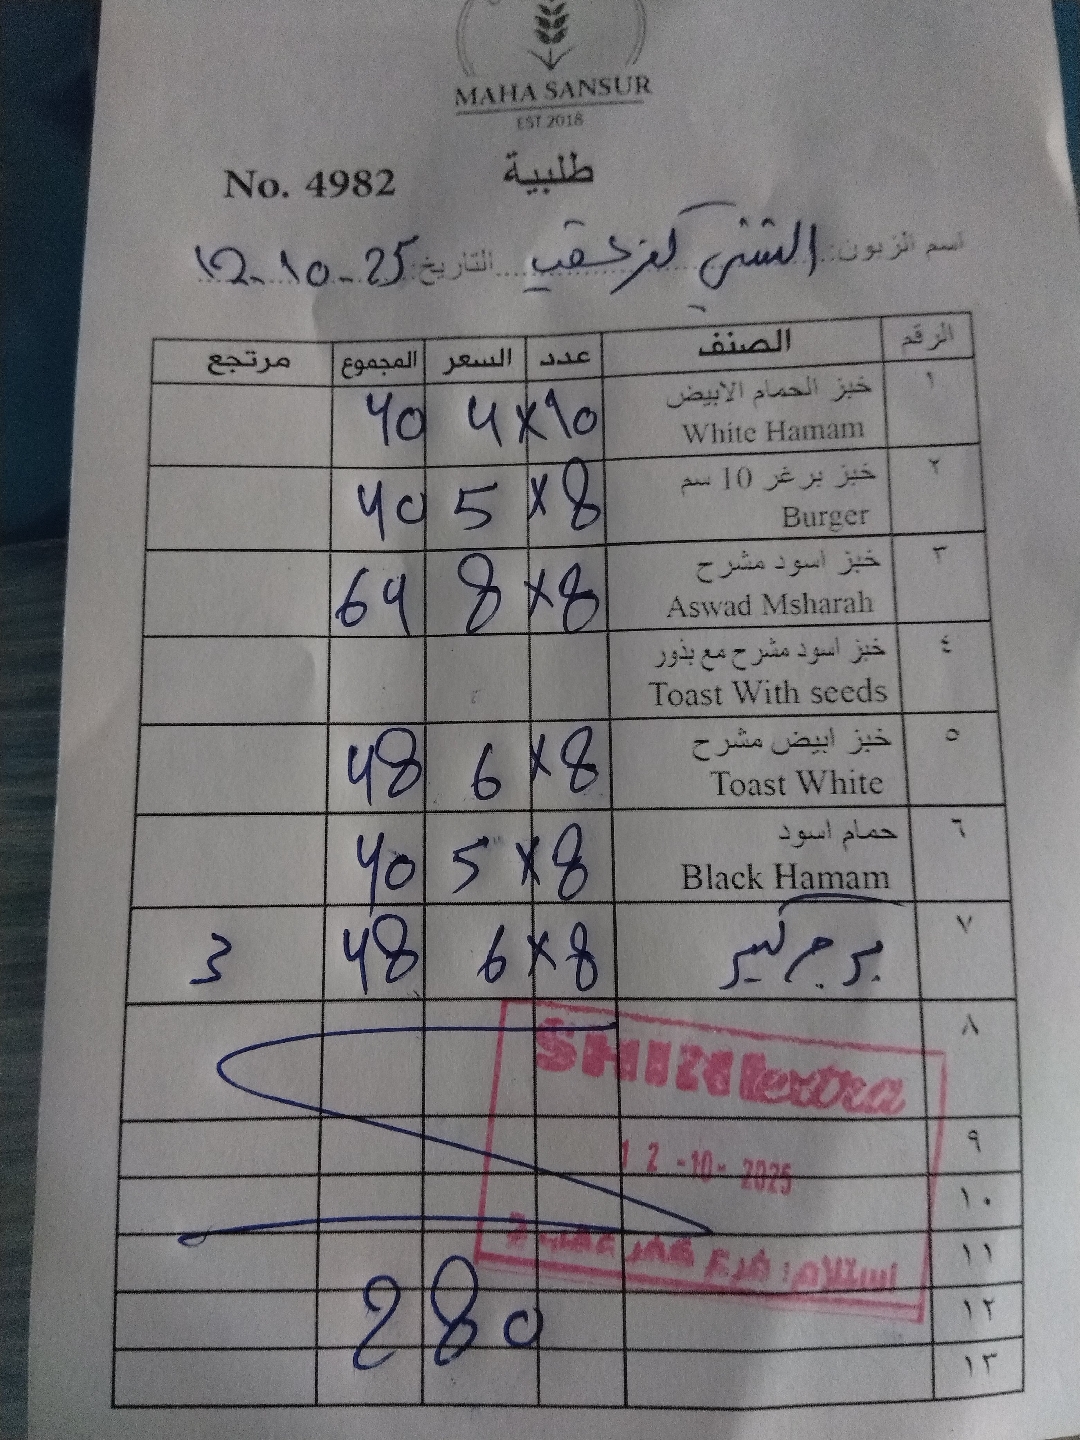 MAHA SANSUR
EST.2018
No. 4982 طلبية
اسم الزبون: الشني كفر عقب التاريخ: 12-10-25
الرقم الصنف عدد السعر المجموع مرتجع
١ خبز الحمام الابيض White Hamam 10 × 4 40
٢ خبز برغر 10 سم Burger 8 × 5 40
٣ خبز اسود مشرح Aswad Msharah 8 × 8 64
٤ خبز اسود مشرح مع بذور Toast With seeds
٥ خبز ابيض مشرح Toast White 8 × 6 48
٦ حمام اسود Black Hamam 8 × 5 40
٧ برجر كبير 8 × 6 48 3
٨
SHINI extra
٩
12-10-2025
١٠
١١
استلام: فرع كفر عقب 2
١٢
280
١٣